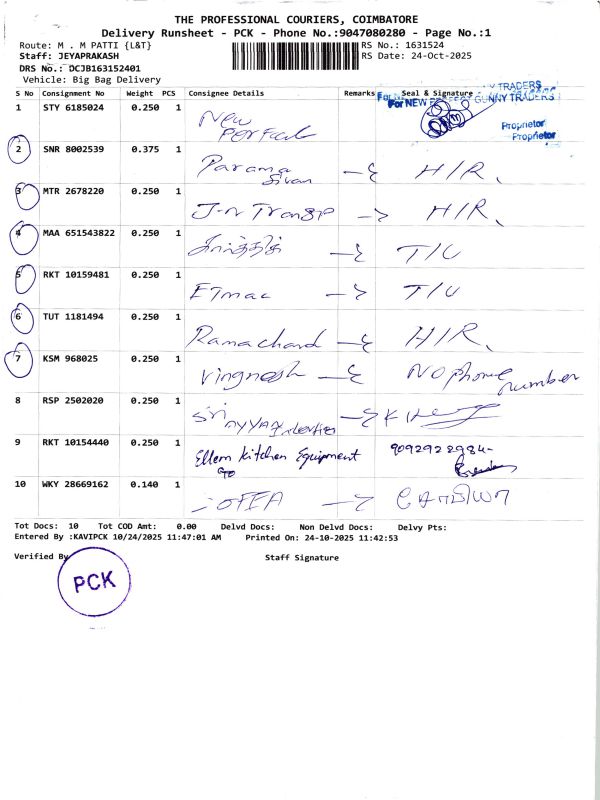 THE PROFESSIONAL COURIERS, COIMBATORE
Delivery Runsheet - PCK - Phone No.:9047080280 - Page No.:1
Route: M . M PATTI {L&T} RS No.: 1631524
Staff: JEYAPRAKASH RS Date: 24-Oct-2025
DRS No.: DCJB163152401
Vehicle: Big Bag Delivery
S No Consignment No Weight PCS Consignee Details Remarks Seal & Signature
1 STY 6185024 0.250 1 New Perfect For NEW PERFECT GUNNY TRADERS Proprietor
2 SNR 8002539 0.375 1 Parama Sivan → H/R.
3 MTR 2678220 0.250 1 J-n Transp → H/R.
4 MAA 651543822 0.250 1 கார்த்திக் → T/U
5 RKT 10159481 0.250 1 ETmac → T/U
6 TUT 1181494 0.250 1 Ramachand → H/R.
7 KSM 968025 0.250 1 Vingnesh → NO phone number
8 RSP 2502020 0.250 1 Sri
9 RKT 10154440 0.250 1 Ellem kitchen Equipment 9092922984
10 WKY 28669162 0.140 1
Tot Docs: 10 Tot COD Amt: 0.00 Delvd Docs: Non Delvd Docs: Delvy Pts:
Entered By :KAVIPCK 10/24/2025 11:47:01 AM Printed On: 24-10-2025 11:42:53
Verified By Staff Signature
PCK